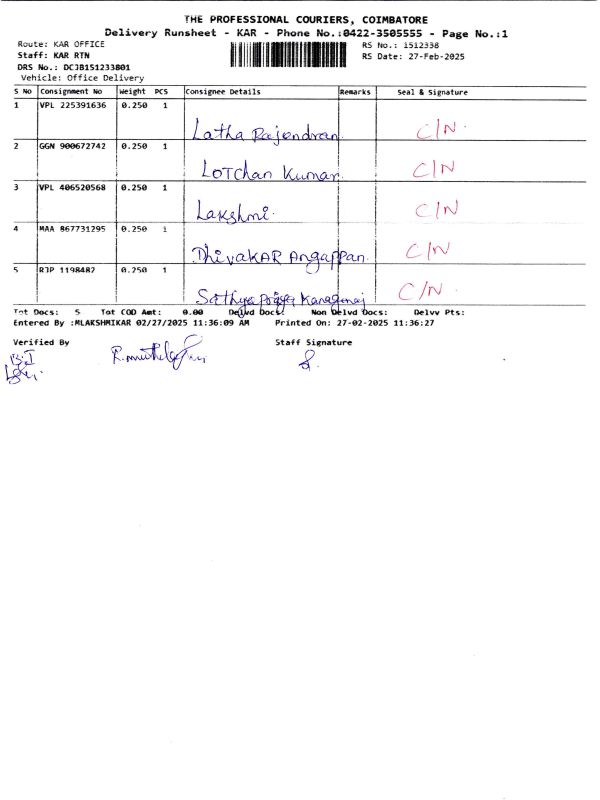 THE PROFESSIONAL COURIERS, COIMBATORE
Delivery Runsheet - KAR - Phone No.:0422-3505555 - Page No.:1
Route: KAR OFFICE RS No.: 1512338
Staff: KAR RTN RS Date: 27-Feb-2025
DRS No.: DCJB151233801
Vehicle: Office Delivery
S No Consignment No Weight PCS Consignee Details Remarks Seal & Signature
1 VPL 225391636 0.250 1
Latha Rajendran. C/N.
2 GGN 900672742 0.250 1
LOTChan Kumar. C/N.
3 VPL 406520568 0.250 1
Lakshmi. C/N
4 MAA 867731295 0.250 1
DhivaKAR Angappan. C/N
5 RJP 1198482 0.250 1
Sathya C/N.
Tot Docs: 5 Tot COD Amt: 0.00 Delvd Docs: Non Delvd Docs: Delvv Pts:
Entered By :MLAKSHMIKAR 02/27/2025 11:36:09 AM Printed On: 27-02-2025 11:36:27
Verified By Staff Signature